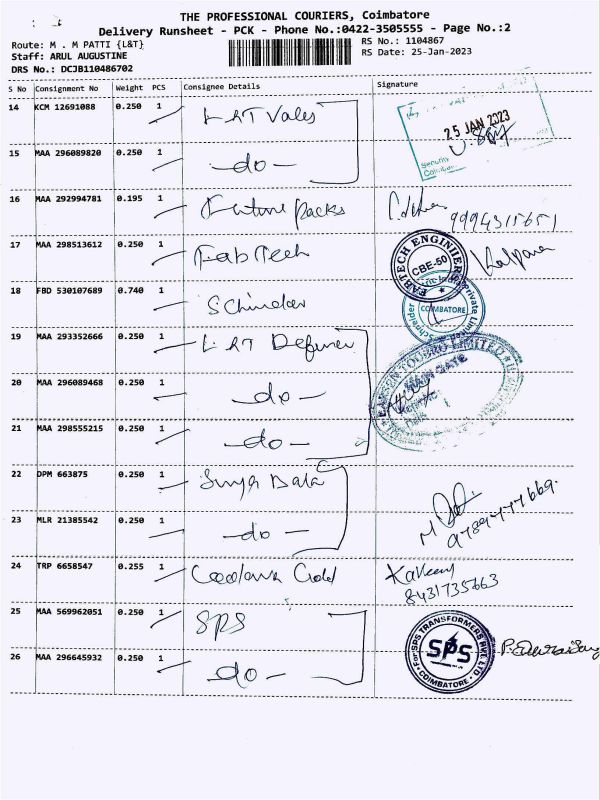 THE PROFESSIONAL COURIERS, Coimbatore
Delivery Runsheet - PCK - Phone No.:0422-3505555 - Page No.:2
Route: M . M PATTI {L&T}
Staff: ARUL AUGUSTINE
DRS No.: DCJB110486702
RS No.: 1104867
RS Date: 25-Jan-2023
S No Consignment No Weight PCS Consignee Details Signature
14 KCM 12691088 0.250 1 L&T Vales
25 JAN 2023
Security
15 MAA 296089820 0.250 1 -do-
16 MAA 292994781 0.195 1 Future packs 9994315651
17 MAA 298513612 0.250 1 FabTech Kalpana
FABTECH ENGINEERS CBE-50
18 FBD 530107689 0.740 1
COIMBATORE
19 MAA 293352666 0.250 1 L&T
LARSEN TOUBRO LIMITED
MAIN GATE
20 MAA 296089468 0.250 1 -do-
21 MAA 298555215 0.250 1 -do-
22 DPM 663875 0.250 1 Surya Data
23 MLR 21385542 0.250 1 -do- 9789777669.
24 TRP 6658547 0.255 1
8431735663
25 MAA 569962051 0.250 1 SPS
For SPS TRANSFORMERS PVT. LTD
SPS
COIMBATORE
26 MAA 296645932 0.250 1 -do-